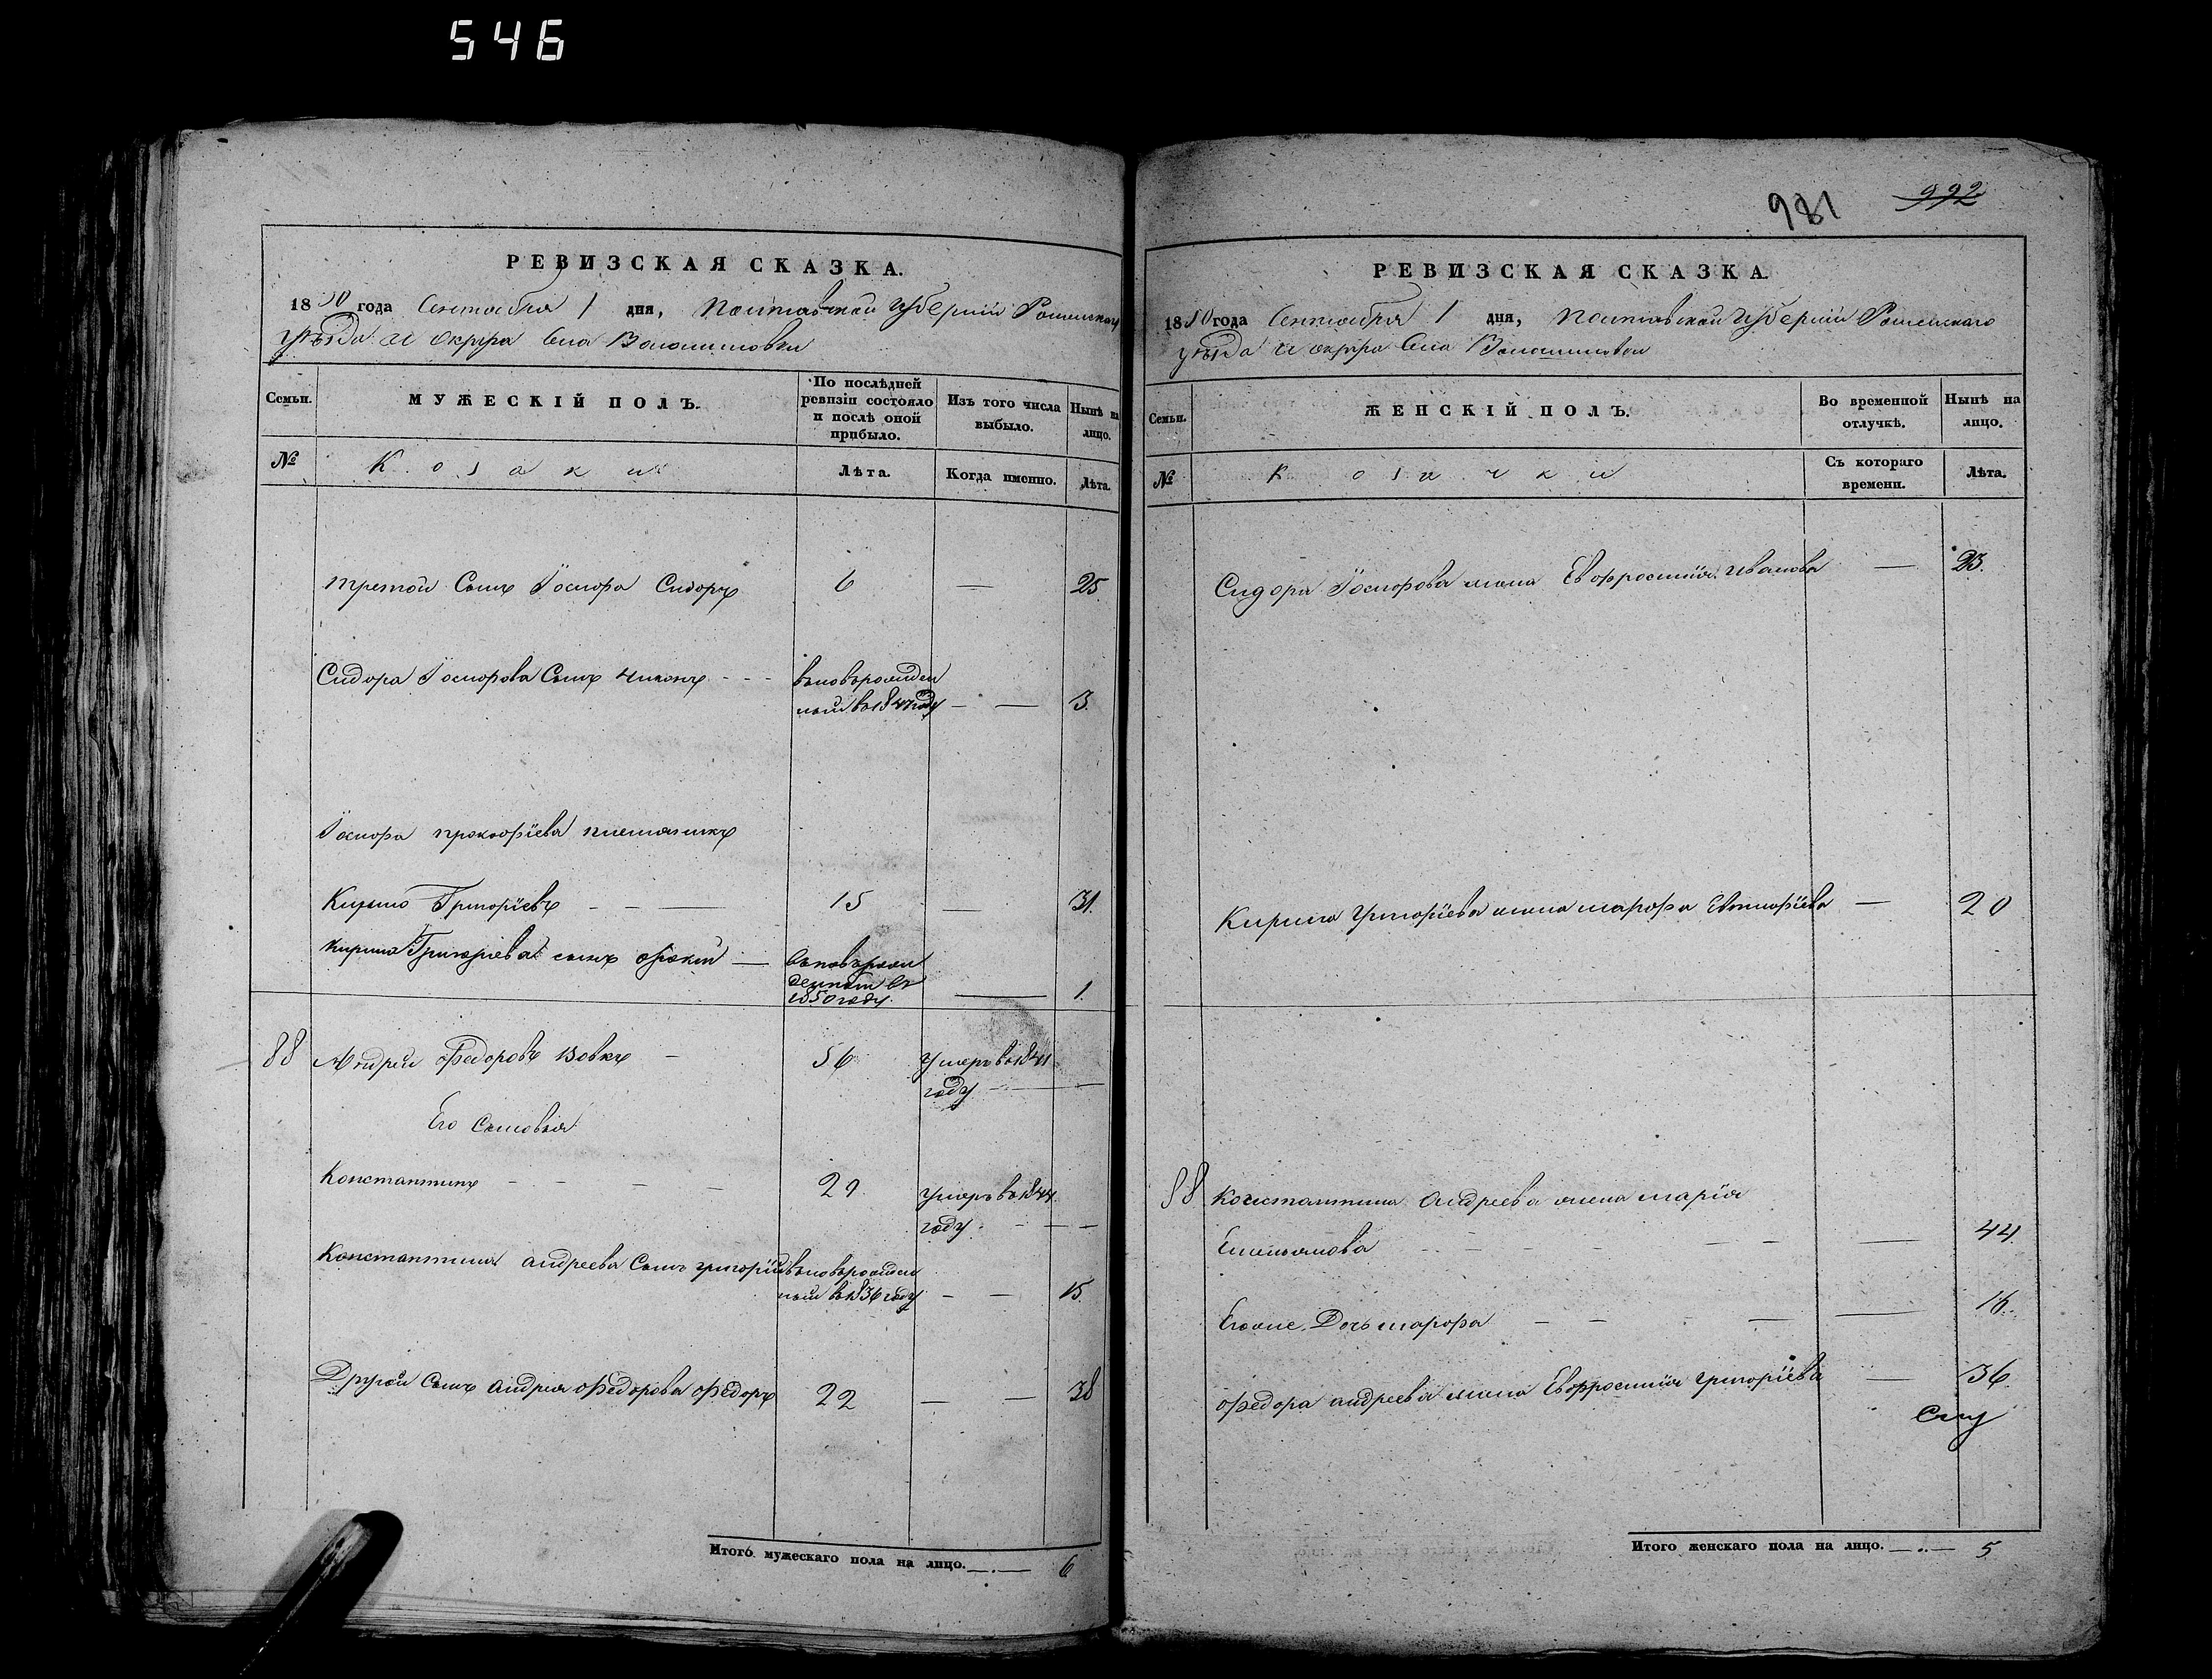 546
РЕВИЗСКАЯ СКАЗКА.
1850 года Сентября 1 дня, Полтавской Губернiи Роменскаго
уѣзда и округа Села Волошиновки
Семьи.
МУЖЕСКІЙ ПОЛЪ.
По послѣдней ревизіи состояло и послѣ оной прибыло.
Изъ того числа выбыло.
Нынѣ на лицо.
№
Козаки
Лѣта.
Когда именно.
Лѣта.
третой Сынъ Іосифа Сидоръ 6 — 25
Сидора Іосифова Сынъ Никонъ - - - вновьрожден
ный в 1847 году — — 3.
Іосифа Прокофіева племянникъ
Кирило Григоріевъ — — — 15 — 31.
Кирила Григоріева сынъ — вновьрож
денный в
1850 году. — 1.
88 Андрей Федоровъ Вовкъ — 56 Умеръ в 1841
году — —
Его Сыновья
Константинъ — — — — 29. Умеръ в 1844
году. — — —
Константина андреева Сынъ григорій вновьрожден
ный в 1836 году — — 15.
Другой Сынъ андрея федорова федоръ 22 — — 38
Итого мужескаго пола на лицо. — 6
981 992
РЕВИЗСКАЯ СКАЗКА.
1850 года Сентября 1 дня, Полтавской Губернiи Роменскаго
уѣзда и округа Села Волошиновки
Семьи.
ЖЕНСКІЙ ПОЛЪ.
Во временной отлучкѣ.
Нынѣ на лицо.
№
Козачки
Съ котораго времени.
Лѣта.
Сидора Іосифова жена Евфросинія Иванова — 23.
Кирила григоріева жена марфа — 20
88 Константина Андреева жена марія
Емельянова — — — — — — 44.
Егоже Дочь марфа — — — — — 16.
федора андреева жена Евфросинія григоріева — 36.
Итого женскаго пола на лицо. — 5